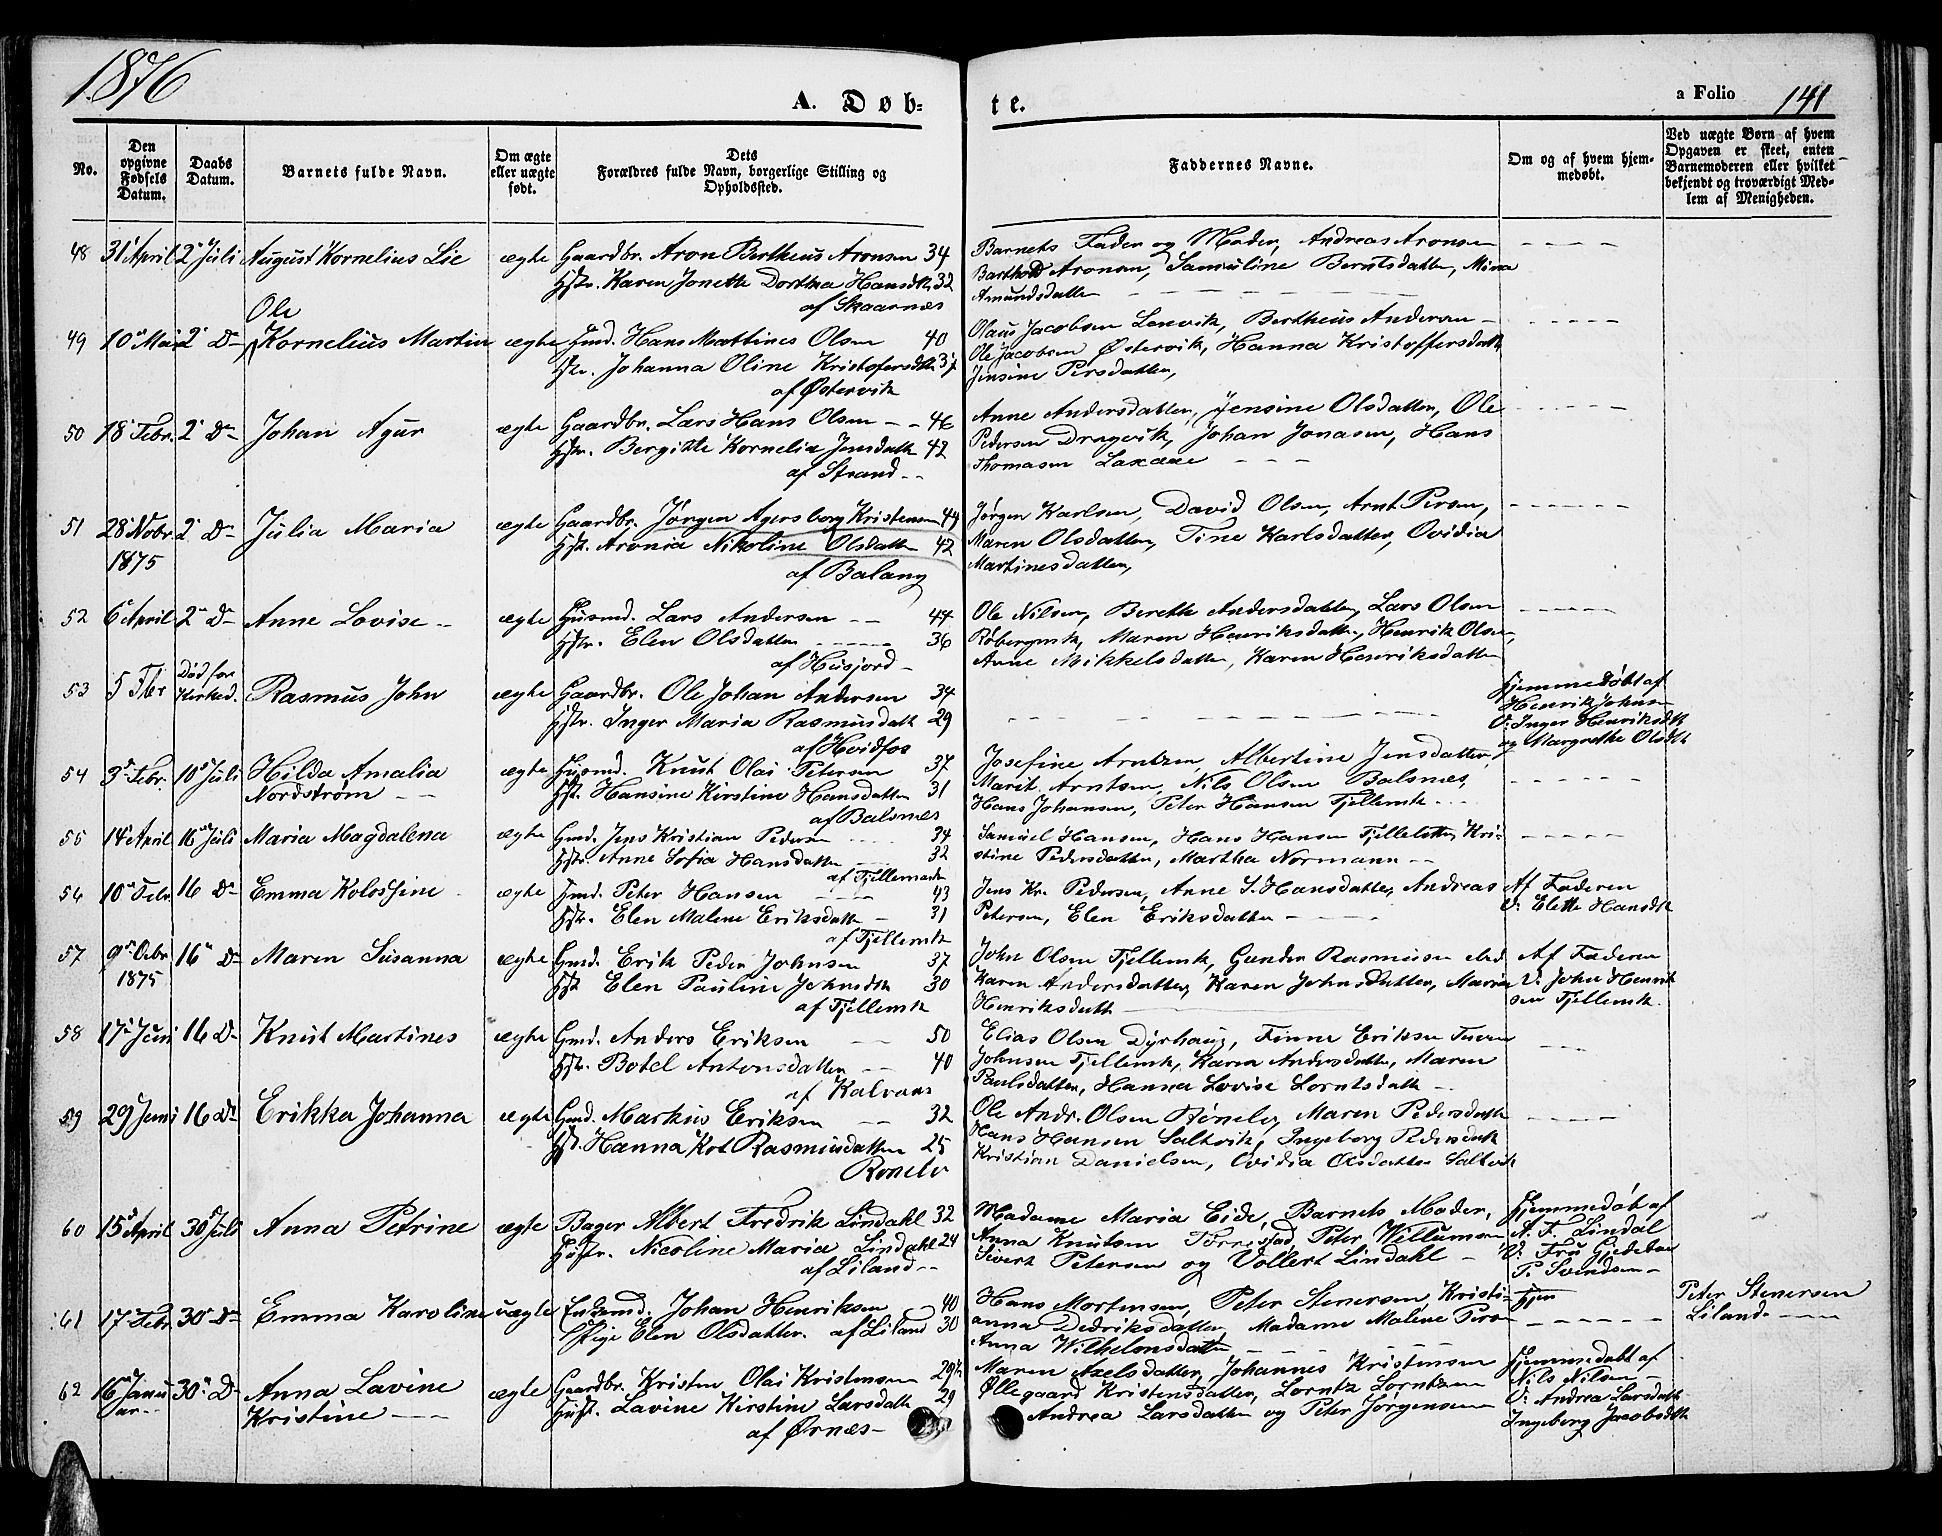 1876
A. Døb-
te.
a Folio 141
No.
Den opgivne Fødsels Datum.
Daabs Datum.
Barnets fulde Navn.
Om ægte eller uægte født.
Dets Forældres fulde Navn, borgerlige Stilling og Opholdssted.
Faddernes Navne.
Om og af hvem hjemmedøbt.
Ved uægte Børn af hvem Opgaven er skeet, enten Barnemoderen eller hvilket bekjendt og troværdigt Medlem af Menigheden.
48 31 April 2 Juli August Kornelius Lie ægte Gaardbr. Aron Bertheus Aronsen 34
Hstr. Karen Jonette Dorthea Hansdtr 32
af Skaarnæs
Barnets Fader og Moder, Andreas Aronsen
Barthold Aronsen, Samuline Berntsdatter, Mina
Amundsdatter
Ole
49 10 Mai 2 Do Kornelius Martin ægte Gmd. Hans Mattines Olsen 40
Hstr. Johanna Oline Kristofersdtr 37
af Østervik
Olaus Jacobsen Lenvik, Bertheus Andersen
Ole Jacobsen Østervik, Hanna Kristoffersdatt
Jensine Persdatter,
50 18 Febr. 2 Do Johan Agur ægte Gaardbr. Lars Hans Olsen 46
Hstr. Bergitte Kornelia Jensdatt 42
af Strand
Anne Andersdatter, Jensine Olsdatter, Ole
Pedersen Dragvik, Johan Jonasen, Hans
Thomasen Laxaae
51 28 Novbr 1875 2 Do Julia Maria ægte Gaardbr. Jørgen Agersborg Kristensen 44
Hstr. Aronia Nikoline Olsdatter 42
af Balang
Jørgen Karlsen, David Olsen, Arnt Persen,
Maren Olsdatter, Tine Karlsdatter, Ovidia
Martinesdatter,
52 6 April 2 Do Anne Lovise ægte Husmd. Lars Andersen 44
Hstr. Elen Olsdatter 36
af Husjord
Ole Nilsen, Berethe Andersdatter, Lars Olsen
Maren Henriksdatter, Henrik Olsen,
Anne Mikkelsdatter, Karen Henriksdatter
53 5 Fbr Død før Kirked. Rasmus John ægte Gaardbr. Ole Johan Andersen 34
Hstr. Inger Maria Rasmusdatt 29
af Hvidfos
Hjemmedøbt af
Henrik Johnsen
V. Inger Henriksdtr
og Margrethe Olsdtr
54 3 Febr. 10 Juli Hilda Amalia ægte Husmd. Knut Olai Petersen 37
Nordstrøm
Hstr. Hansine Kirstine Hansdatter 31
af Balsnes
Josefine Arntzen, Albertine Jensdatter,
Marit Arntsen, Nils Olsen Balsnes,
Hans Johansen, Peter Hansen Tjellemk
55 14 April 16 Juli Maria Magdalena ægte Gmd. Jens Kristian Pedersen 34
Hstr. Anne Sofia Hansdatter 32
af Tjellemark
Samuel Hansen, Hans Hansen Kri-
stine Pedersdatter, Martha Normann
56 10 Febr 16 Do Emma Kolossine ægte Gmd. Peter Hansen 43
Hstr. Elen Malene Eriksdatter 31
af Tjellemk
Jens Kr. Pedersen, Anne S. Hansdatter, Andreas
Petersen, Elen Eriksdatter
Af Faderen
V. Elette Hansdtr
57 9 Octbr 1875 16 Do Maren Susanna ægte Gmd. Erik Peder Johnsen 37
Hstr Elen Pauline Johnsdtr 30
af Tjellemk
John Olsen Tjellemk, Gunder Rasmusen
Karen Andersdatter, Karen Johnsdatter, Maria
Henriksdatt
Af Faderen
V. John Henrik-
sen Tjellemk.
58 17 Juni 16 Do Knut Martines ægte Gmd. Anders Eriksen 50
Hstr. Botel Antonsdatter 40
af Kalvaas
Elias Olsen Dyrhaug, Finne Eriksen
Johnsen Tjellemk, Karen Andersdatter, Maren
Paulsdatter, Hanna Lovise Lorntsdatt
59 29 Juni 16 Do Erikka Johanna ægte Gmd. Markus Eriksen 32
Hstr. Hanna Kat Rasmusdatter 25
Rønelv
Ole Andr. Olsen Rønelv, Maren Pedersdatt
Hans Hansen Saltvik, Ingeborg Pedersdatt
Kristian Danielsen, Ovidia Olsdatter Saltvik
60 15 April 30 Juli Anna Petrine ægte Bager Albert Fredrik Lindahl 32
Hustr. Nicoline Maria Lindahl 24
af Liland
Madame Maria Eide, Barnets Moder,
Anna Knutsen Peter Willumsen,
Sivert Petersen og Vollert Lindahl
Hjemmedøbt af
A. F. Lindal
V. Fru
P. Svendsen
61 17 Febr. 30 Do Emma Karoline uægte Enkemd. Johan Henriksen 40
Pige Elen Olsdatter af Liland 30
Hans Mortensen, Peter Stenersen, Kristi-
anna Dedriksdatter, Madame Malene
Anna Wilhelmsdatter
Hjem
Peter Stenersen
Liland
62 16 Janu- 30 Do Anna Lavine ægte Gaardbr. Kristen Olai Kristensen 29½
ar Kristine
Hustr. Lavine Kirstine Larsdatt 29
af Ørnæs
Maren Axelsdatter, Johannes Kristensen
Øllegaard Kristensdatter, Lorntz Lorntzen
Andrea Larsdatter og Peter Jørgensen
Hjemmedøbt af
Nils Nilsen
V. Andrea Larsdatt
Ingeborg Jacobsdtr